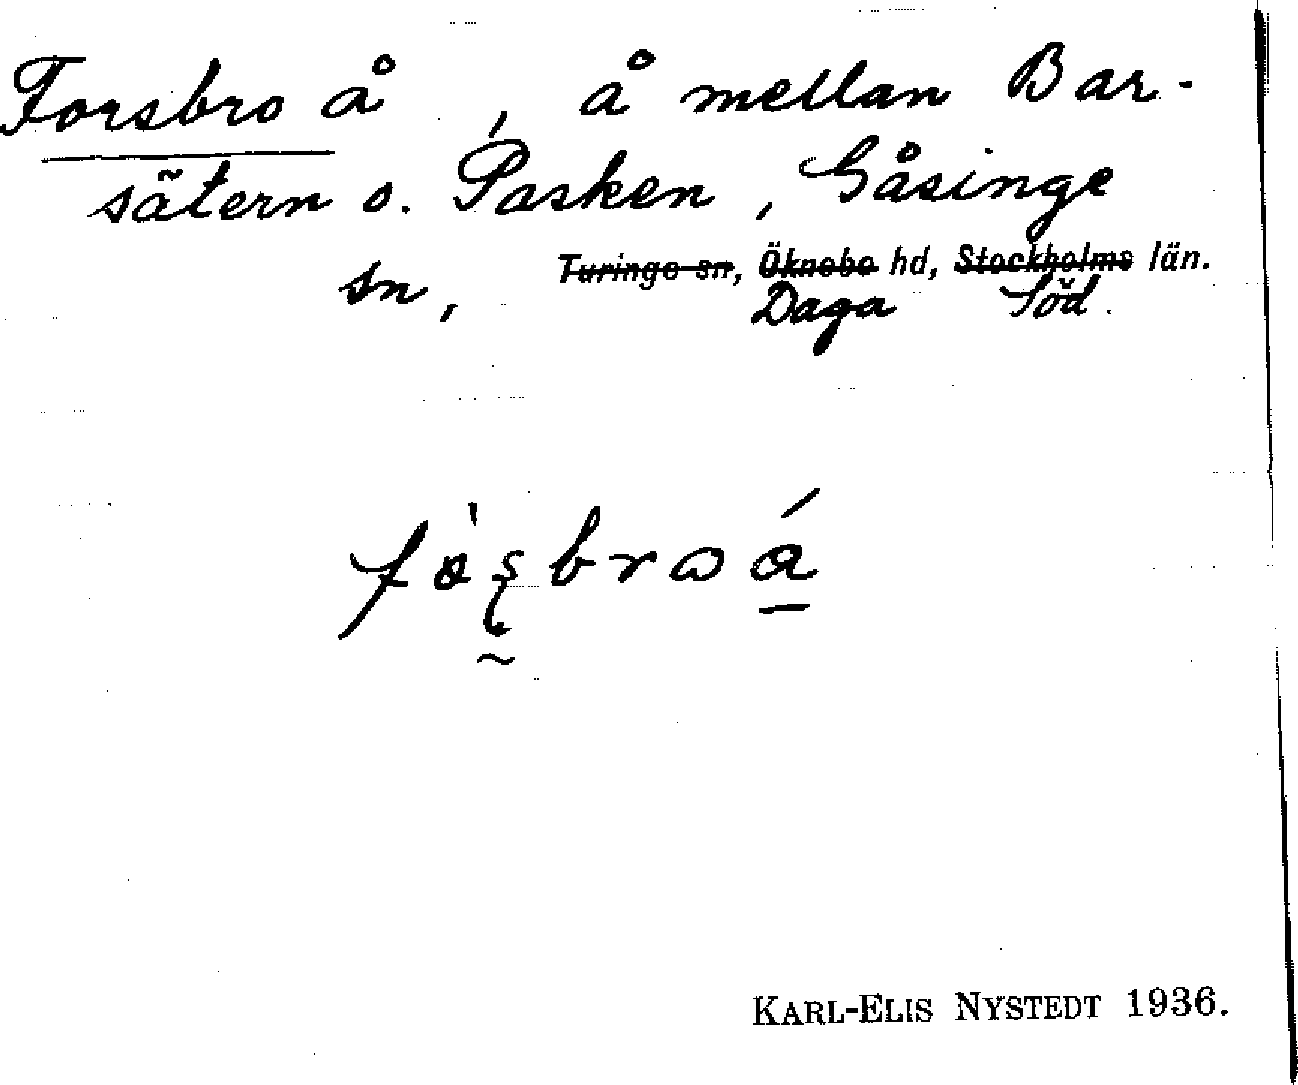 Forsbro å, å mellan Bar-
sätern o. Pasken, Gåsinge
sn, Turinge sn, Öknebo hd, Stockholms län.
Daga Söd.
KARL-ELIS NYSTEDT 1936.